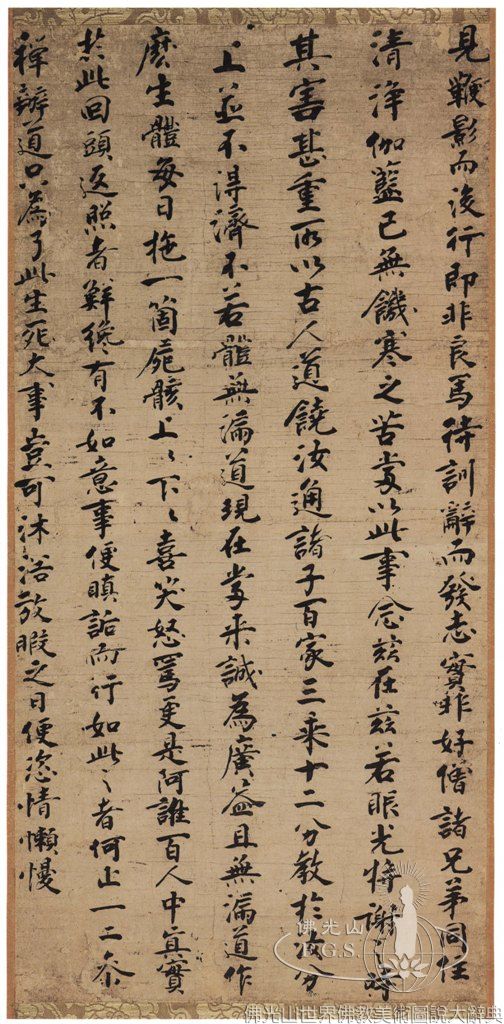 見鞭影而後行即非良馬待訓辭而發志實非好僧諸兄弟同住
清淨伽藍已無饑寒之苦當以此事念茲在茲若眼光將謝之時
其害甚重所以古人道饒汝通諸子百家三乘十二分教於汝分
上並不得濟不若體無漏道現在當來誠為廣益且無漏道作
麼生體每日拖一箇死骸上〻下〻喜笑怒罵更是阿誰百人中真實
於此回頭返照者鮮纔有不如意事便瞋詬而行如此之者何止一二參
禪辦道只為了此生死大事豈可沐浴放暇之日便恣情懶慢
佛光山
F.G.S.
佛光山世界佛教美術圖說大辭典